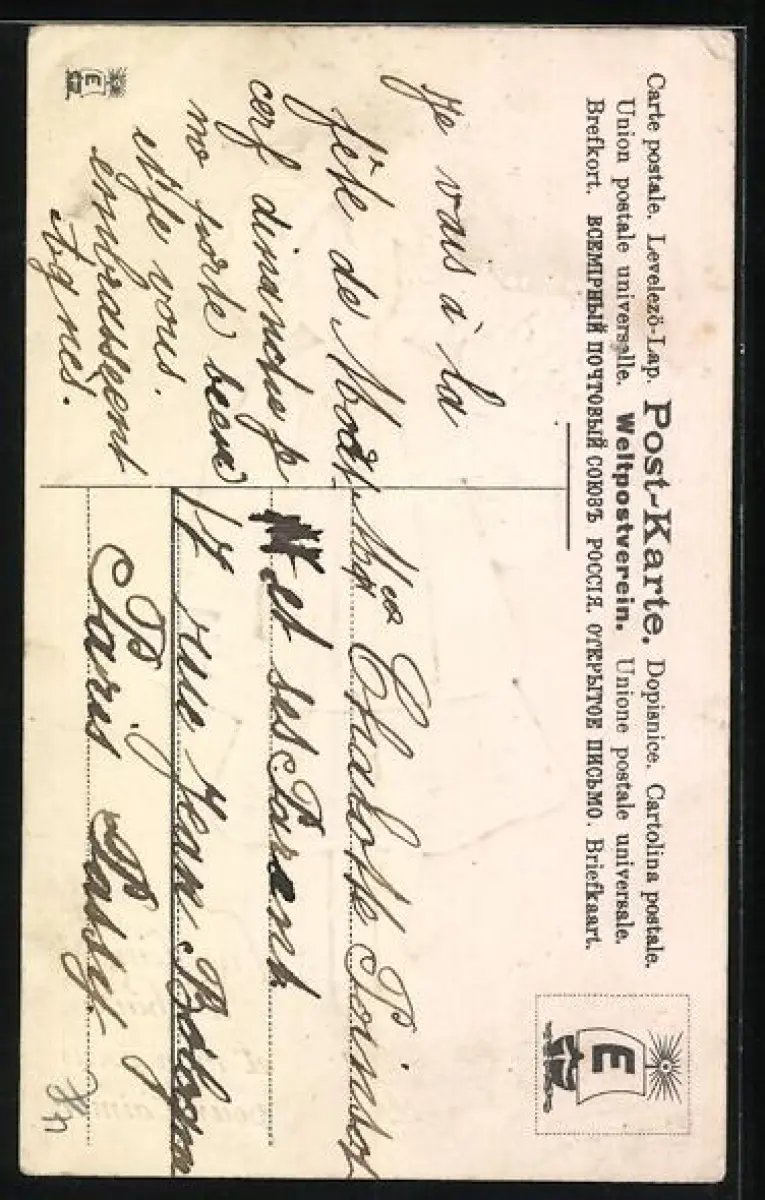 Carte postale. Levelező-Lap. Post-Karte. Dopisnice. Cartolina postale.
Union postale universelle. Weltpostverein. Unione postale universale.
Brefkort. ВСЕМІРНЫЙ ПОЧТОВЫЙ СОЮЗЪ РОССІЯ. ОТКРЫТОЕ ПИСЬМО. Briefkaart.
E
E
Je vais à la
fête de
cerf dimanche je
me porte bien
et je vous
embrassent
Agnes.
Charlotte Poinsot
et ses Parents
17 rue Jean Bologne
Paris Passy